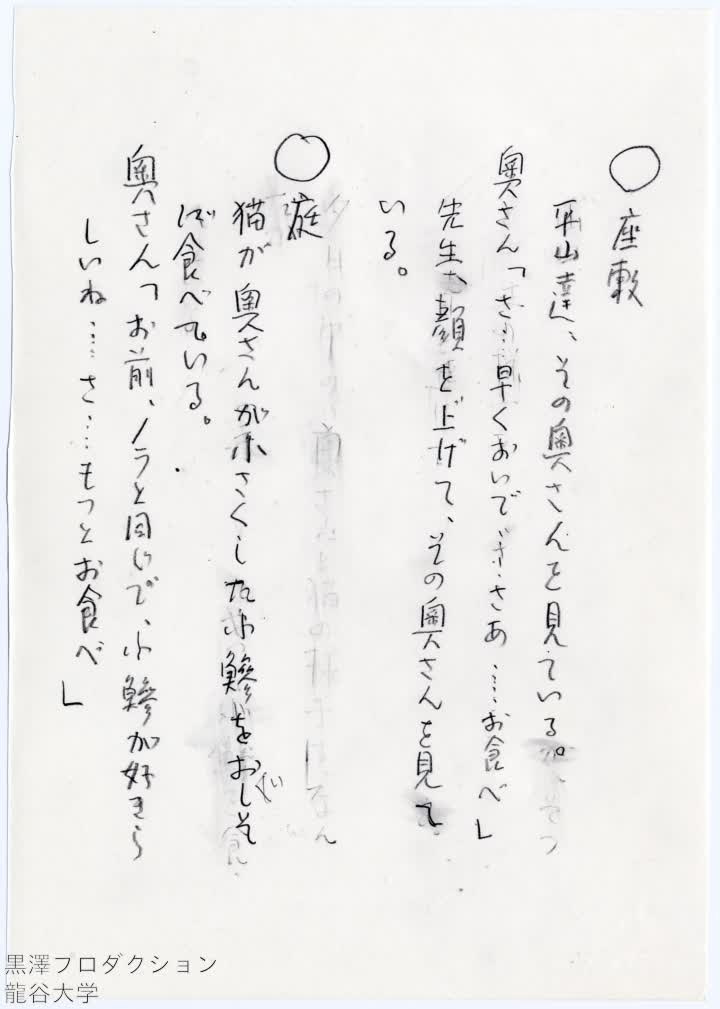 ○座敷
平山達、その奥さんを見ている。
奥さん「さ…早くおいで……さあ……お食べ」
先生も顔を上げて、その奥さんを見て
いる。
○庭
猫が奥さんが小さくした小鯵をおいし
げ食べている。
奥さん「お前、ノラと同じで、小鯵が好きら
しいね……さ…もっとお食べ
」
黒澤プロダクション
龍谷大学